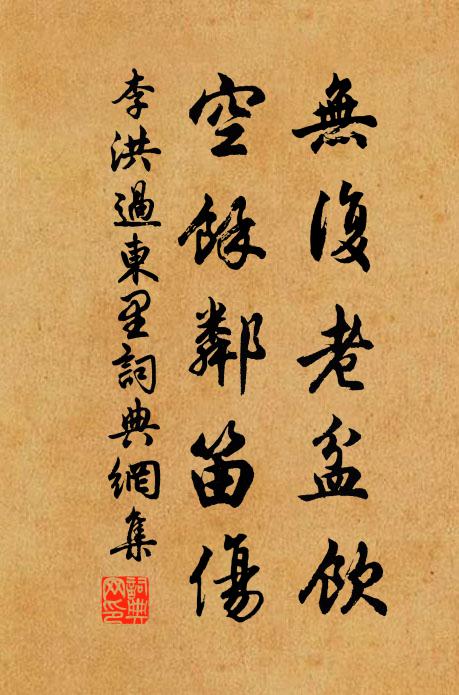 無復老盆飲
空餘鄰笛傷
李洪過東里詞典網集
詞典
网印